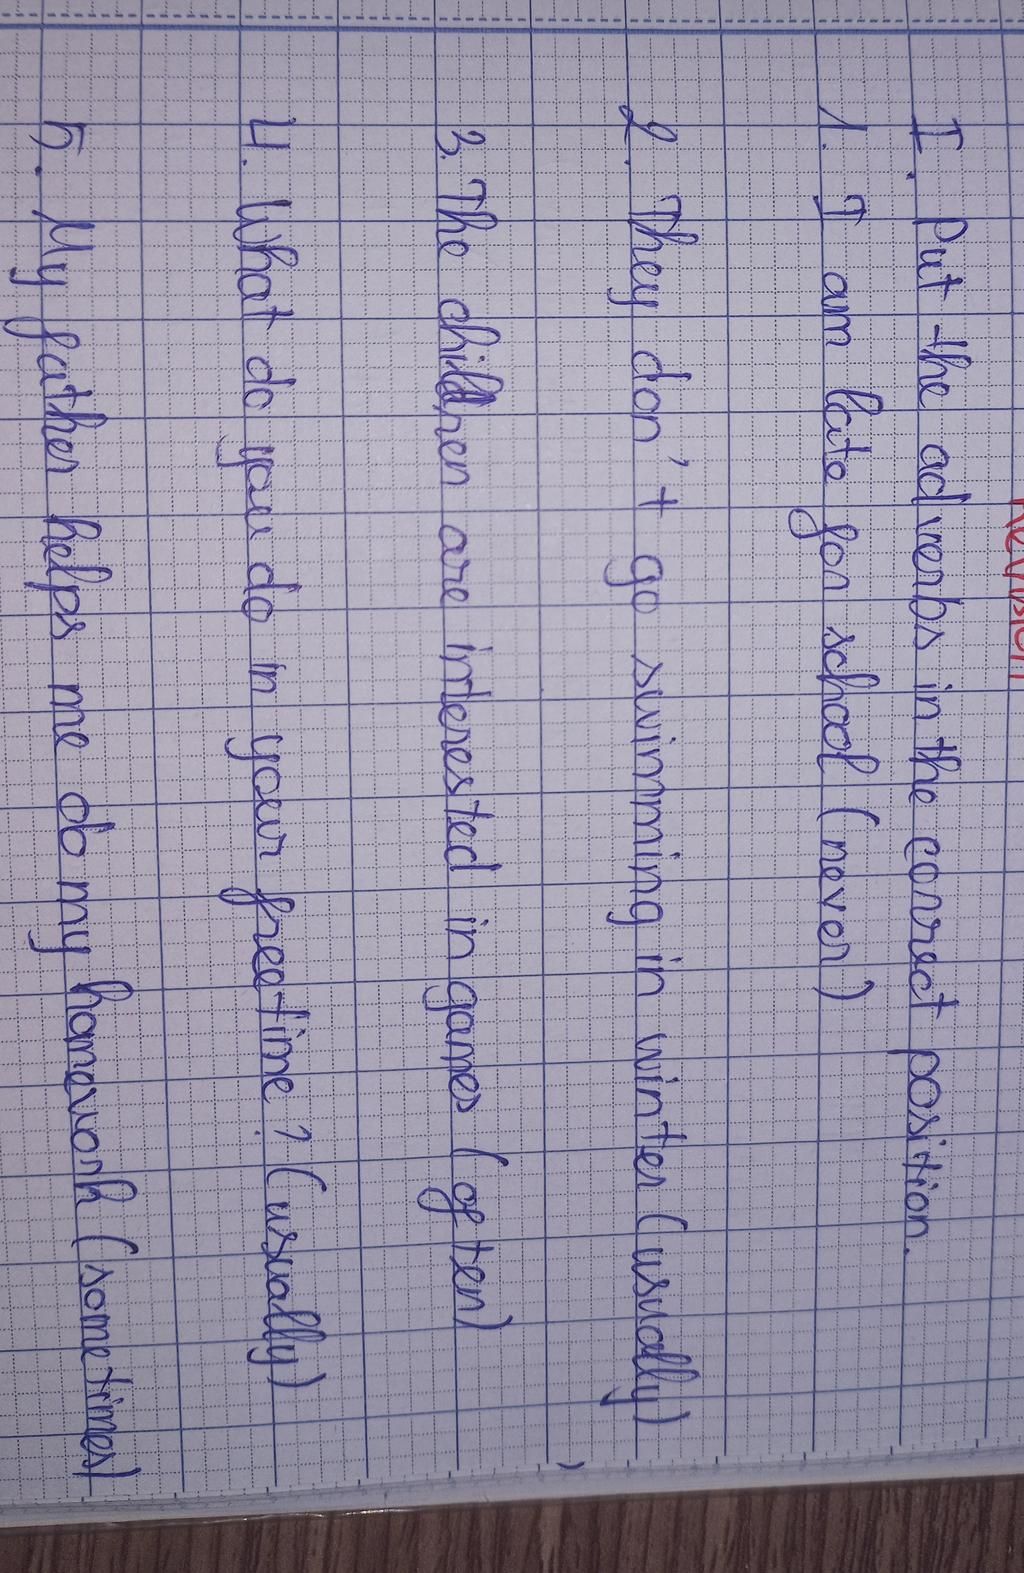 Revision
I. Put the adverbs in the correct position.
1. I am late for school (never)
2. They don't go swimming in winter (usually)
3. The children are interested in games (often)
4. What do you do in your freetime? (usually)
5. My father helps me do my homework (sometimes)